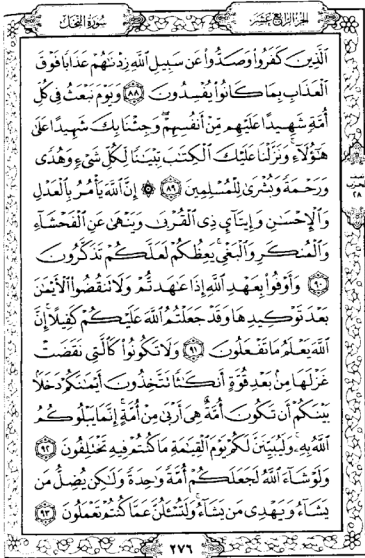 سُورَةُ النَّحْلِ
الجُزْءُ الرَّابِعَ عَشَرَ
الَّذِينَ كَفَرُواْ وَصَدُّواْ عَن سَبِيلِ اللَّهِ زِدْنَٰهُمْ عَذَابًا فَوْقَ
الْعَذَابِ بِمَا كَانُواْ يُفْسِدُونَ ٨٨ وَيَوْمَ نَبْعَثُ فِي كُلِّ
أُمَّةٍ شَهِيدًا عَلَيْهِم مِّنْ أَنفُسِهِمْ وَجِئْنَا بِكَ شَهِيدًا عَلَىٰ
هَٰٓؤُلَآءِ وَنَزَّلْنَا عَلَيْكَ الْكِتَٰبَ تِبْيَٰنًا لِّكُلِّ شَىْءٍ وَهُدًى
وَرَحْمَةً وَبُشْرَىٰ لِلْمُسْلِمِينَ ٨٩ ۞ إِنَّ اللَّهَ يَأْمُرُ بِالْعَدْلِ
وَالْإِحْسَٰنِ وَإِيتَآئِ ذِى الْقُرْبَىٰ وَيَنْهَىٰ عَنِ الْفَحْشَآءِ
وَالْمُنكَرِ وَالْبَغْىِ يَعِظُكُمْ لَعَلَّكُمْ تَذَكَّرُونَ
٩٠ وَأَوْفُواْ بِعَهْدِ اللَّهِ إِذَا عَٰهَدتُّمْ وَلَا تَنقُضُواْ الْأَيْمَٰنَ
بَعْدَ تَوْكِيدِهَا وَقَدْ جَعَلْتُمُ اللَّهَ عَلَيْكُمْ كَفِيلًا إِنَّ
اللَّهَ يَعْلَمُ مَا تَفْعَلُونَ ٩١ وَلَا تَكُونُواْ كَالَّتِى نَقَضَتْ
غَزْلَهَا مِنۢ بَعْدِ قُوَّةٍ أَنكَٰثًا تَتَّخِذُونَ أَيْمَٰنَكُمْ دَخَلًۢا
بَيْنَكُمْ أَن تَكُونَ أُمَّةٌ هِىَ أَرْبَىٰ مِنْ أُمَّةٍ إِنَّمَا يَبْلُوكُمُ
اللَّهُ بِهِۦ وَلَيُبَيِّنَنَّ لَكُمْ يَوْمَ الْقِيَٰمَةِ مَا كُنتُمْ فِيهِ تَخْتَلِفُونَ ٩٢
وَلَوْ شَآءَ اللَّهُ لَجَعَلَكُمْ أُمَّةً وَٰحِدَةً وَلَٰكِن يُضِلُّ مَن
يَشَآءُ وَيَهْدِى مَن يَشَآءُ وَلَتُسْـَٔلُنَّ عَمَّا كُنتُمْ تَعْمَلُونَ ٩٣
٢٧٦
نصف
الحزب
٢٨